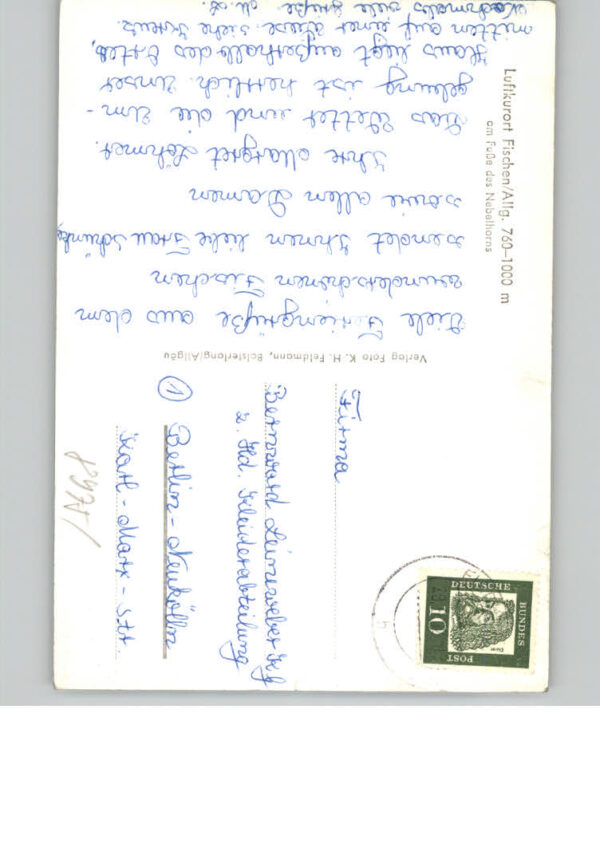 Luftkurort Fischen/Allg. 760–1000 m
am Fuße des Nebelhorns
Viele Feriengrüße aus dem
wunderschönen Fischen
sendet Ihnen liebe Frau
sowie allen Damen
Ihre Margret Löhmer.
Das Wetter und die Um-
gebung ist herrlich. Unser
Haus liegt außerhalb des Ortes,
mitten auf einer Wiese. siehe Kreuz
Nochmals viele Grüße
M. L.
Verlag Foto K. H. Feldmann, Bolsterlang/Allgäu
Firma
Bernward Leineweber
z. Hd. Kleiderabteilung
1 Berlin-Neukölln
Karl-Marx-Str.
DEUTSCHE
BUNDES
POST
10
Dürer